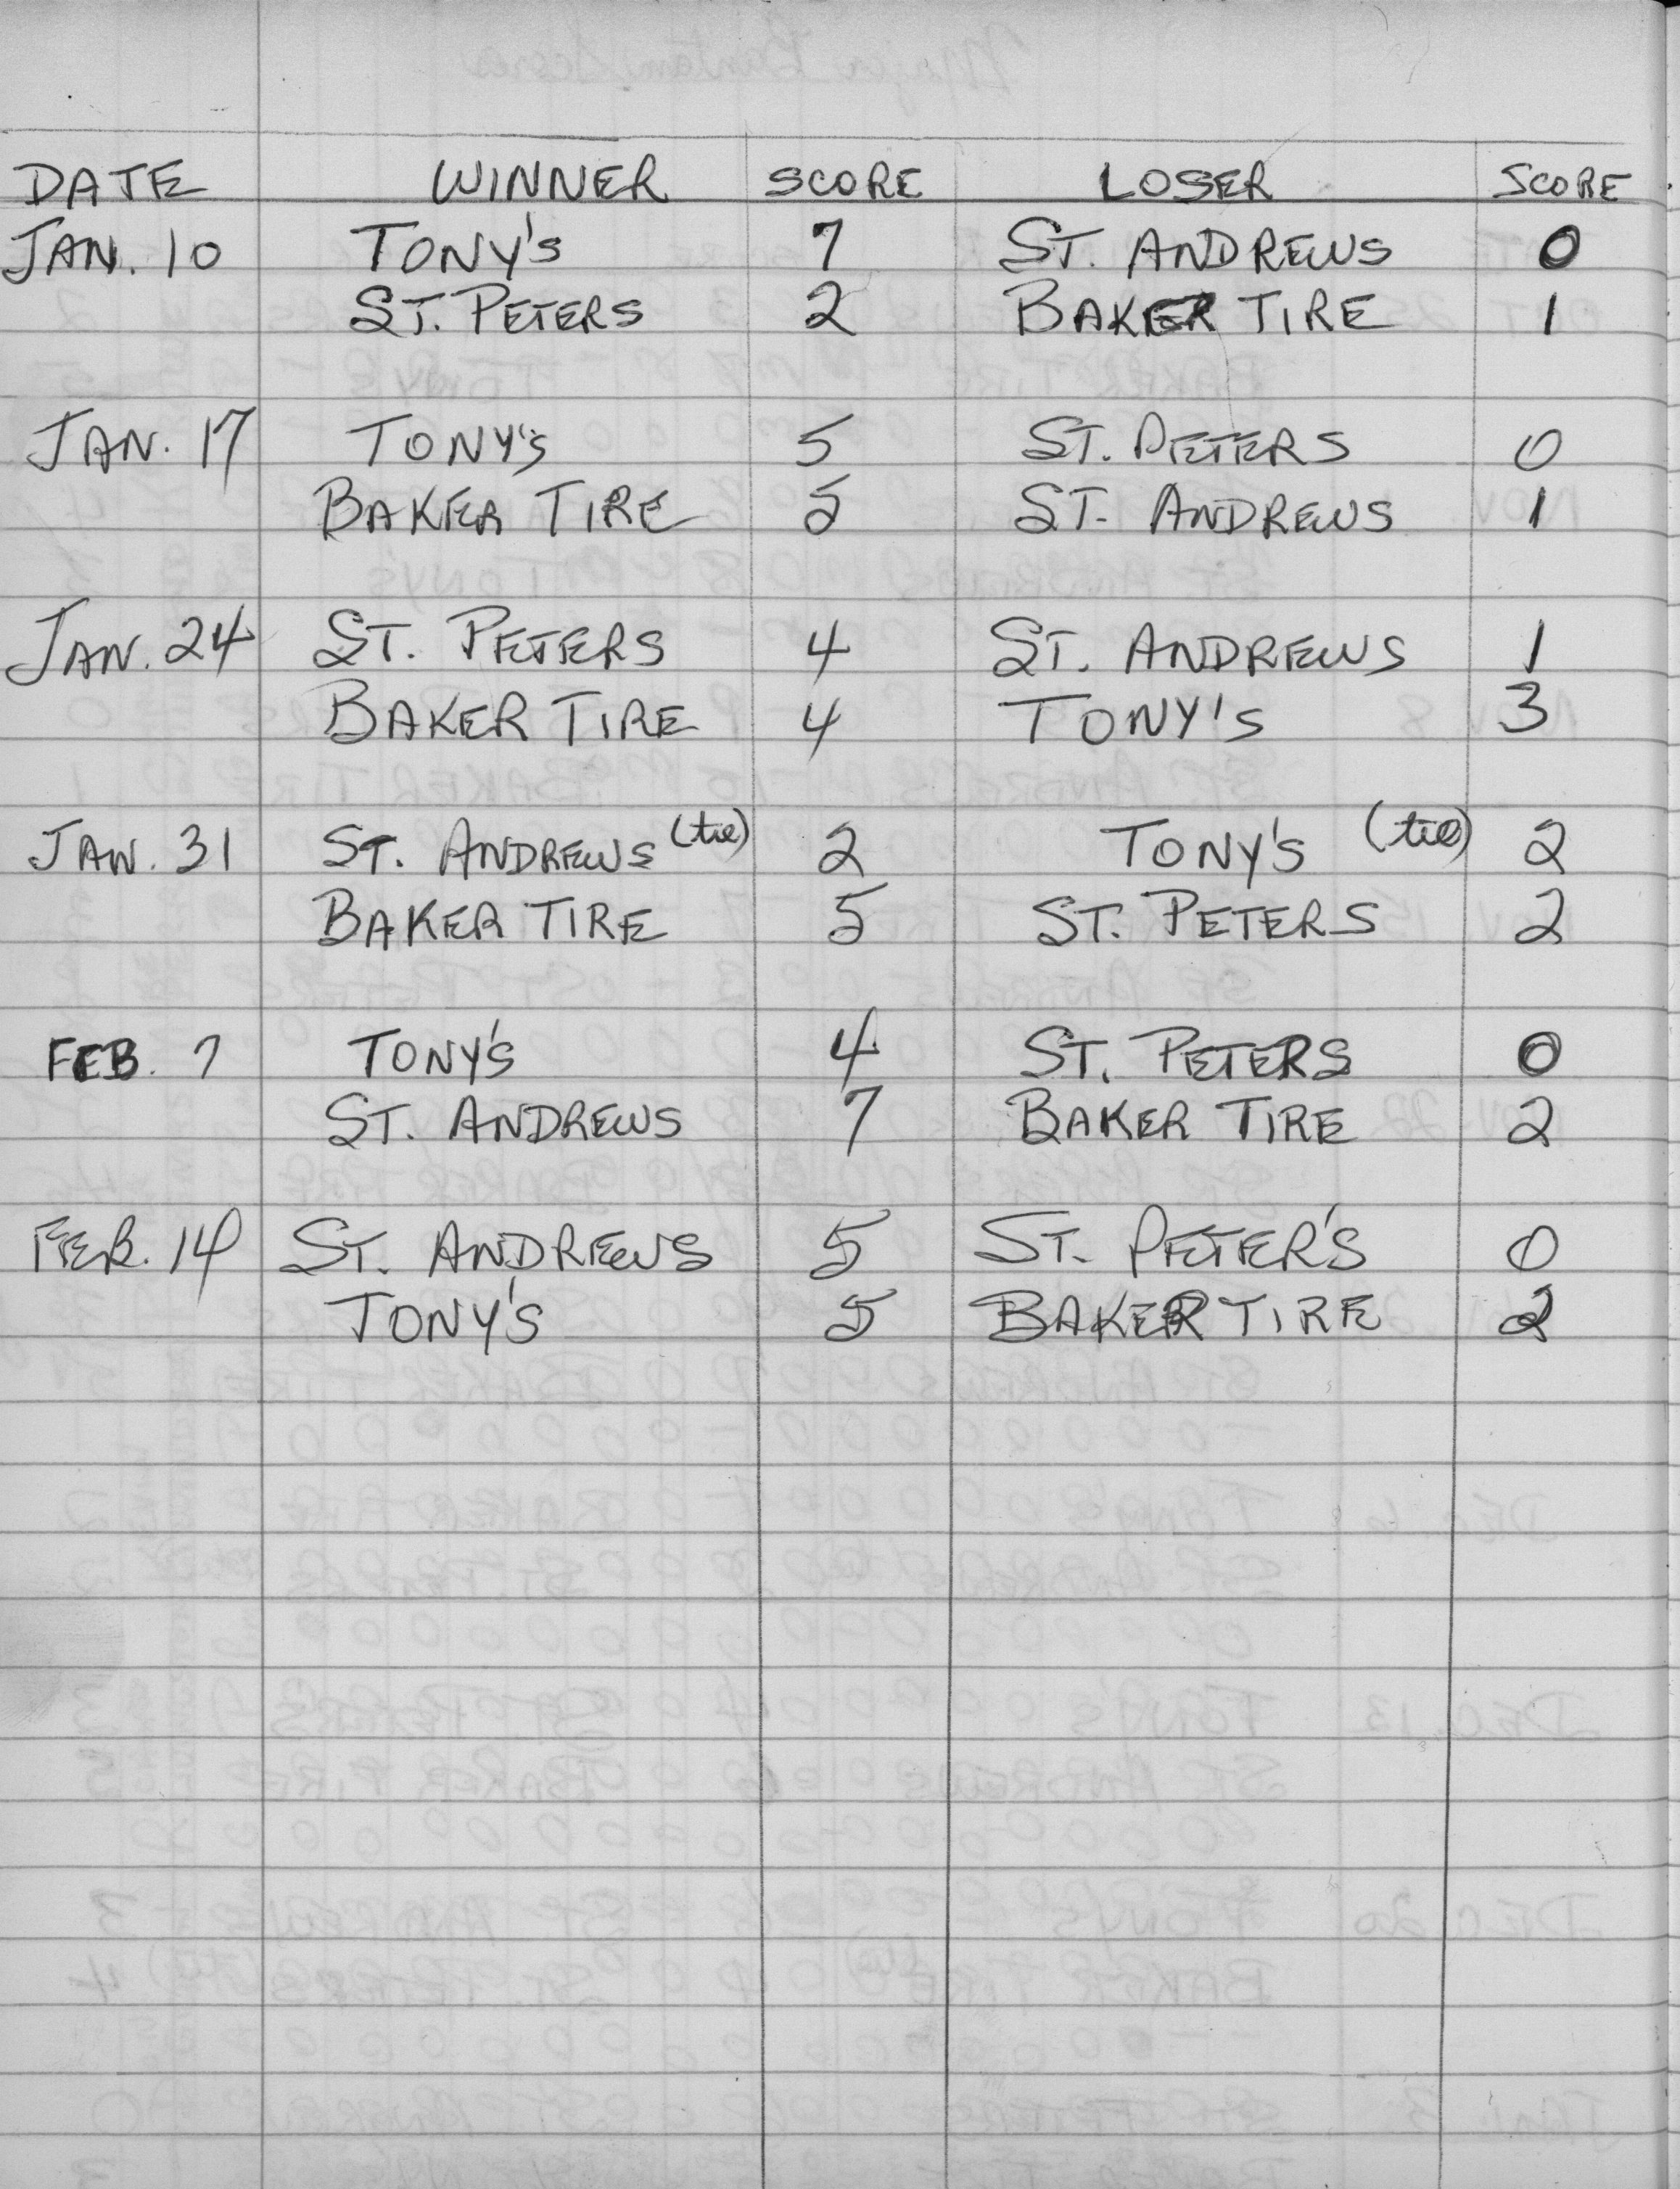 DATE WINNER SCORE LOSER SCORE
JAN. 10 TONY'S 7 ST. ANDREWS 0
ST. PETERS 2 BAKER TIRE 1
JAN. 17 TONY'S 5 ST. PETERS 0
BAKER TIRE 5 ST. ANDREWS 1
JAN. 24 ST. PETERS 4 ST. ANDREWS 1
BAKER TIRE 4 TONY'S 3
JAN. 31 ST. ANDREWS (tie) 2 TONY'S (tie) 2
BAKER TIRE 5 ST. PETERS 2
FEB. 7 TONY'S 4 ST. PETERS 0
ST. ANDREWS 7 BAKER TIRE 2
FEB. 14 ST. ANDREWS 5 ST. PETER'S 0
TONY'S 5 BAKER TIRE 2